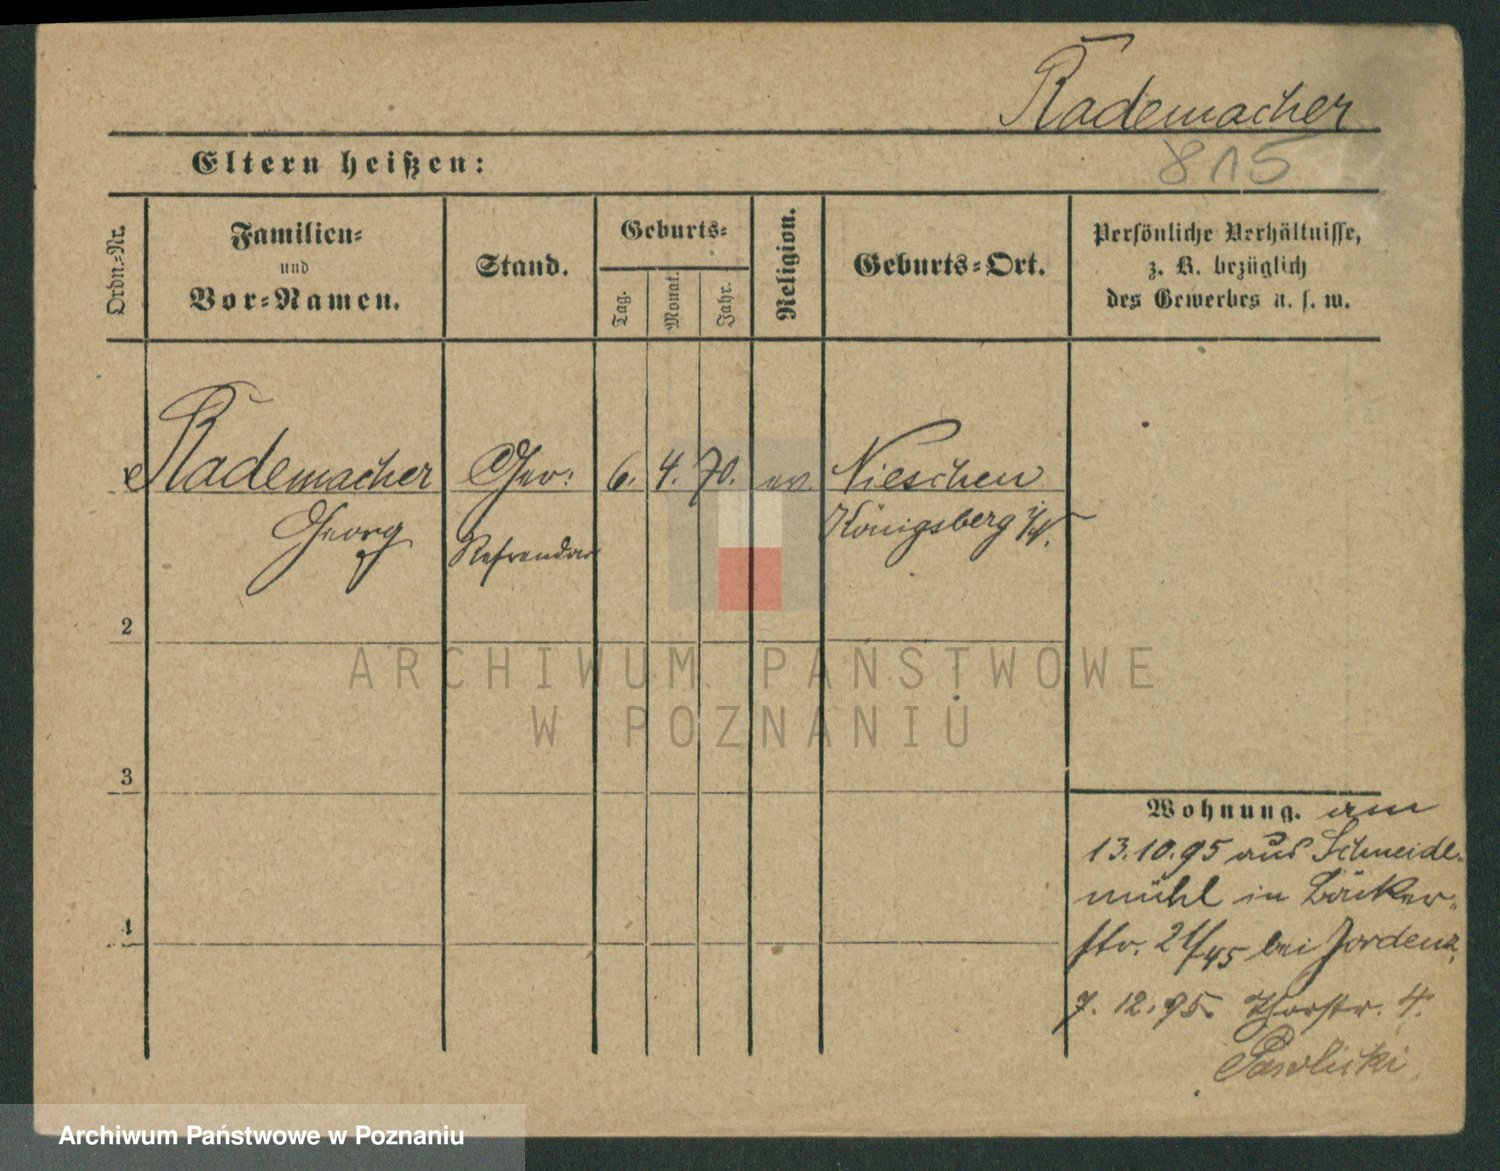 Rademacher
815
Eltern heißen:
Ordn.=Nr.
Familien=
und
Vor=Namen.
Stand.
Geburts=
Tag.
Monat.
Jahr.
Religion.
Geburts=Ort.
Persönliche Verhältnisse,
z. B. bezüglich
des Gewerbes u. s. w.
Rademacher
Georg
Ger:
Refrendar
6. 4. 70.
ev.
Nieschen
Königsberg
2
3
4
Wohnung. am
13.10.95 aus Schneide=
mühl in Bäcker=
str. 21/45 bei
7. 12. 95. Thorstr. 4.
Pawlicki
ARCHIWUM PAŃSTWOWE
W POZNANIU
Archiwum Państwowe w Poznaniu